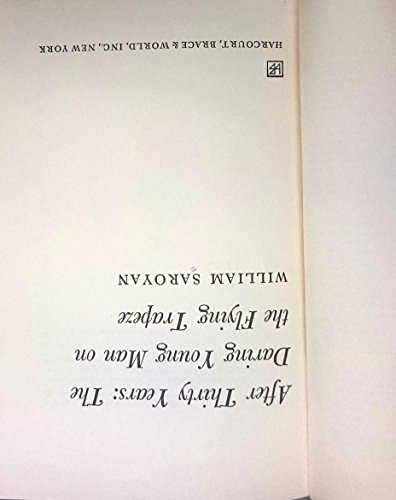 After Thirty Years: The
Daring Young Man on
the Flying Trapeze
WILLIAM SAROYAN
HARCOURT, BRACE & WORLD, INC., NEW YORK